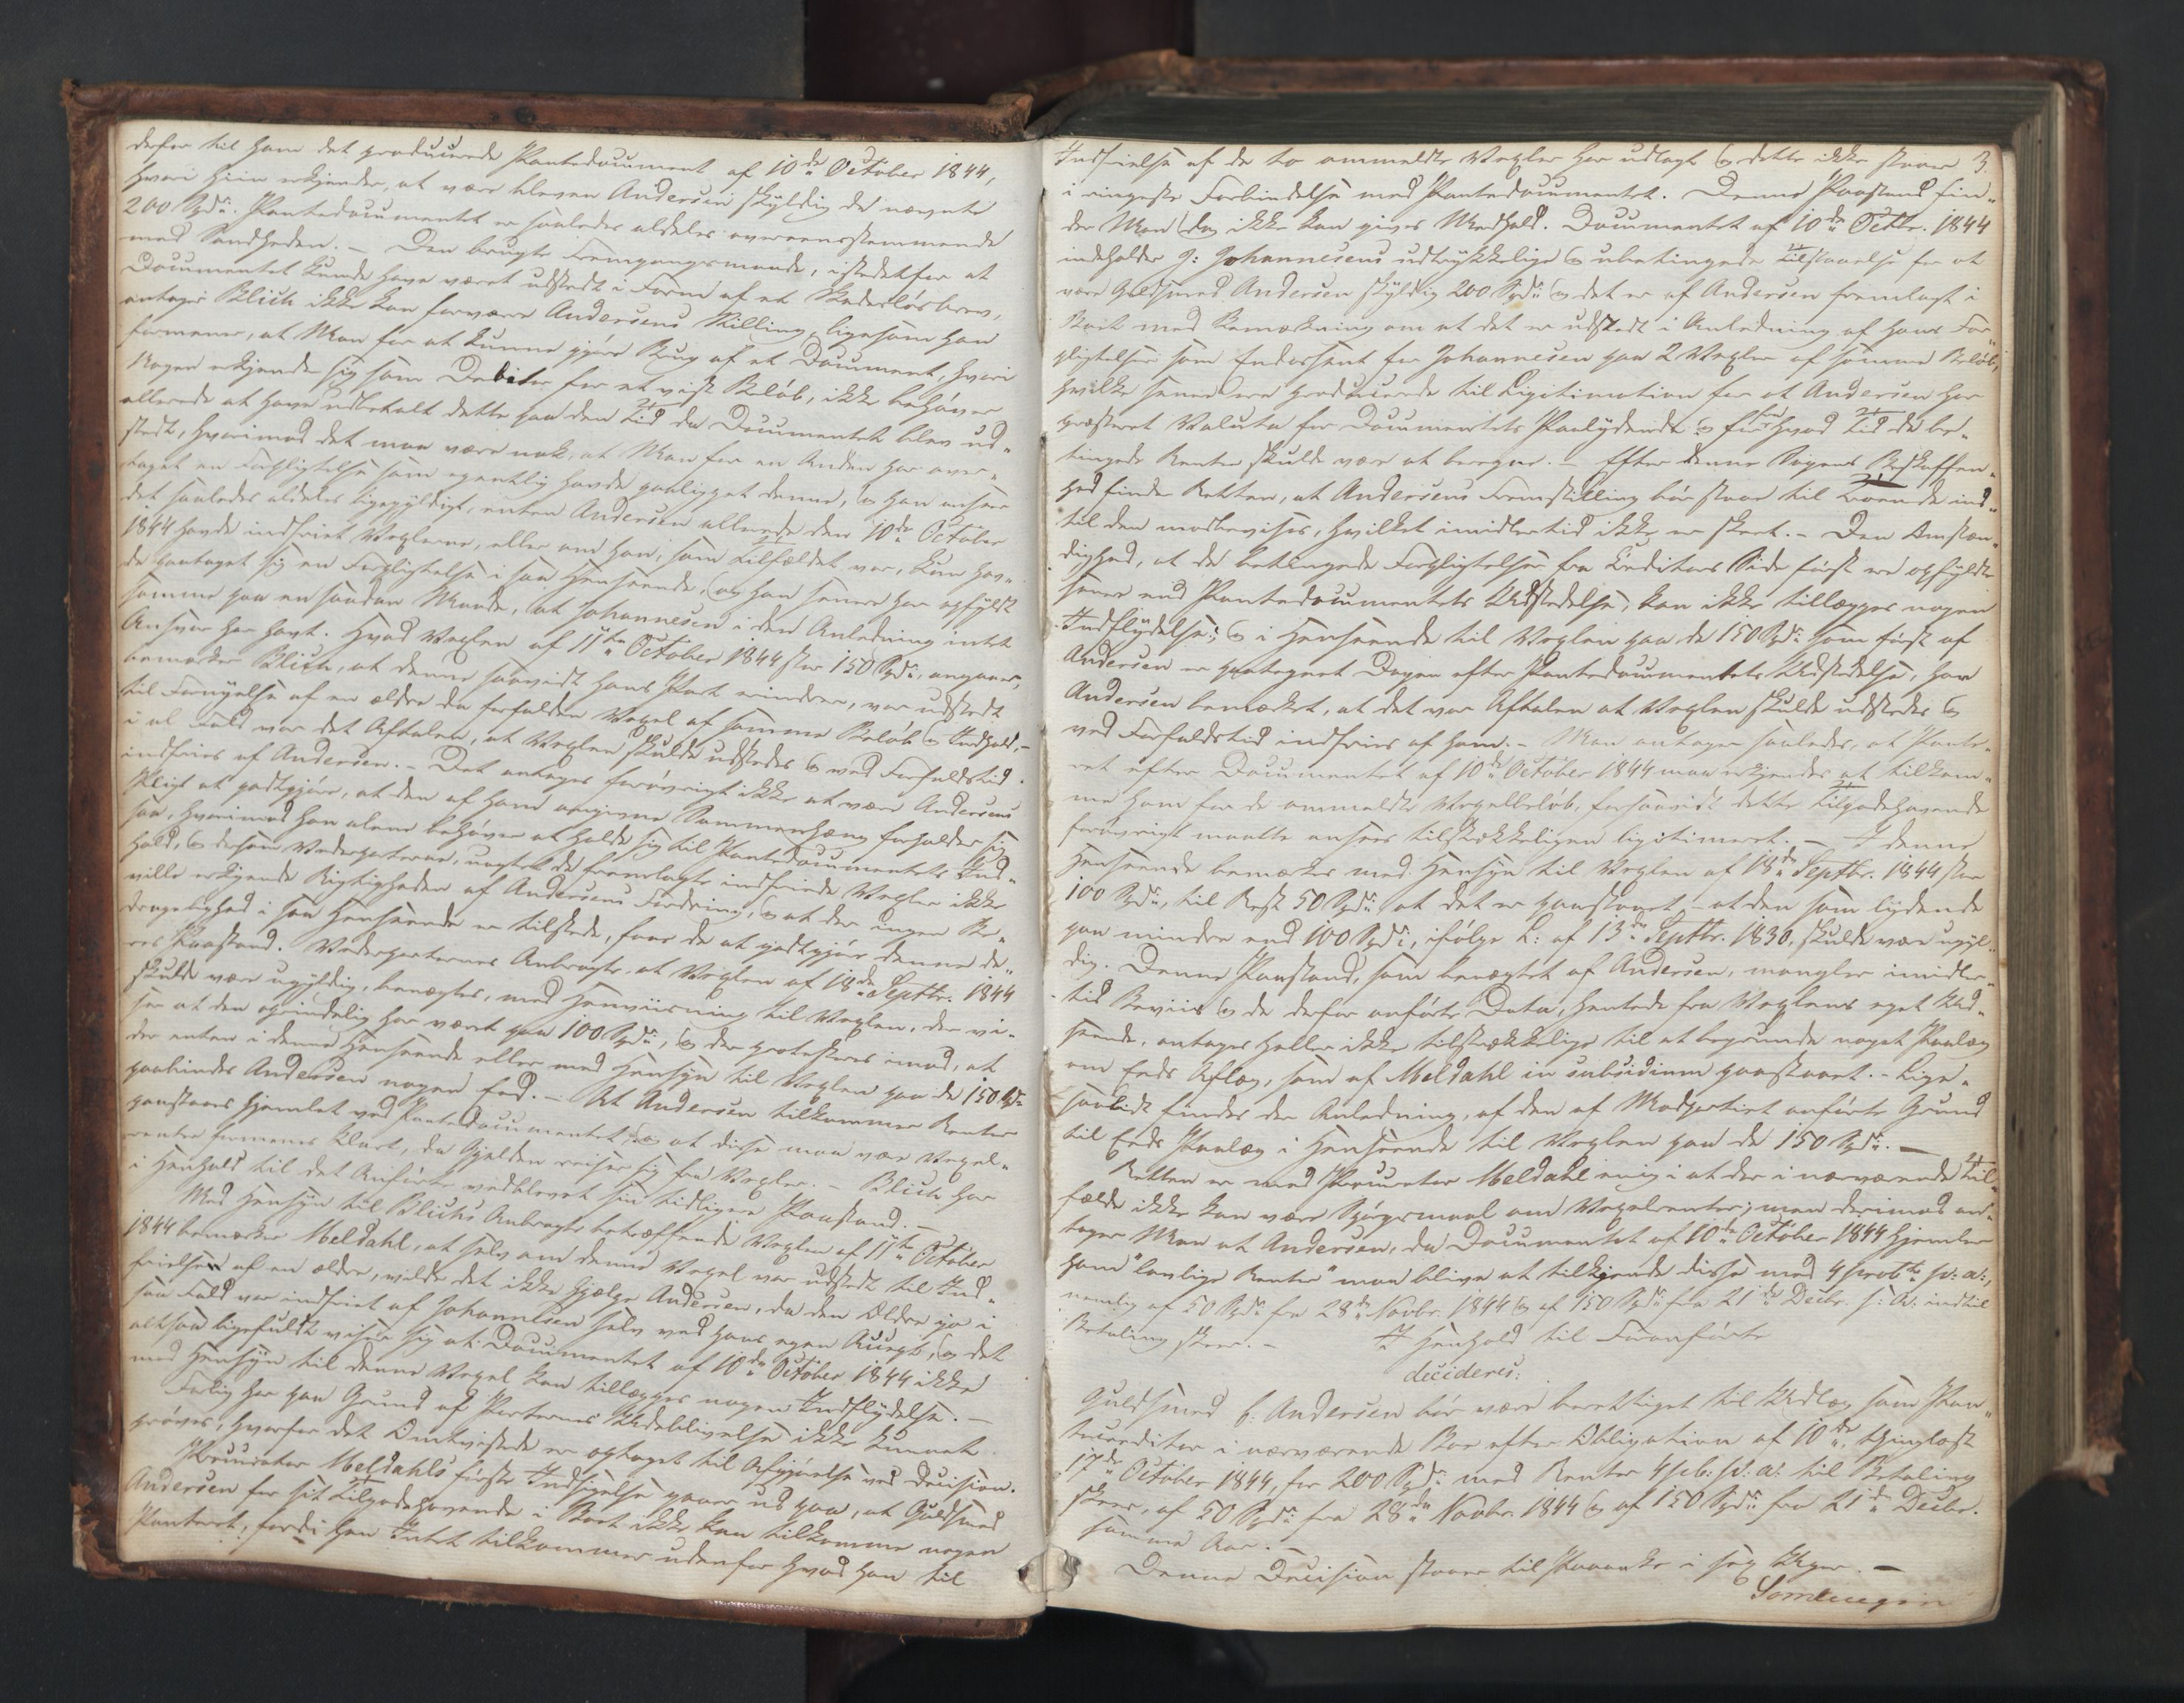 derfor til ham det producerede Pantedocument af 10de October 1844,
hvori hiin erkjender, at være bleven Andersen skyldig de nævnte
200 Spdr. Pantedocumentet er saaledes aldeles overeensstemmende
med Sandheden. – Den brugte Fremgangsmaade, istedetfor at
Documentet kunde have været udstedt i Form af et Skadesløsbrev,
antager Blich ikke kan forværre Andersens Stilling, ligesom han
formener, at Man for at kunne gjøre Brug af et Document, hvori
Nogen erkjender sig som Debitor for et vist Beløb, ikke behøver
allerede at have udbetalt dette paa den Tid da Documentet blev ud-
stedt, hvorimod det maa være nok, at Man for en Anden har over-
taget en Forpligtelse som egentlig havde paaligget denne, og han anseer
det saaledes aldeles ligegyldigt, enten Andersen allerede den 10de October
1844 havde indfriet Vexlerne, eller om han, som Tilfældet var, kun hav-
de paataget sig en Forpligtelse i saa Henseende, og han senere har opfyldt
samme paa en saadan Maade, at Johannesen i den Anledning intet
Ansvar har havt. Hvad Vexlen af 11te October 1844 stor 150 Spdr. angaaer,
bemærker Blich, at denne saavidt hans Part erindrer, var udstedt
til Fornyelse af en ældre da forfalden Vexel af samme Beløb og Indhold, –
i al Fald var det Aftalen, at Vexlen skulde udstedes og ved Forfaldstid
indfries af Andersen. – Det antages forøvrigt ikke at være Andersens
Pligt at godtgjøre, at den af ham angivne Sammenhæng forholder sig
saa, hvorimod han alene behøver at holde sig til Pantedocumentets Ind-
hold, og dersom Vederparterne, uagtet de fremlagte indfriede Vexler ikke
ville erkjende Rigtigheden af Andersens Fordring, og at der ingen Be-
dragelighed i saa Henseende er tilstede, faar de at godtgjøre denne de-
res Paastand. Vederparternes Anbragte, at Vexlen af 18de Septbr. 1844
skulde være ugyldig, benægtes, med Henviisning til Vexlen, der vi-
ser at den oprindelig har været paa 100 Spdr., og der protesteres imod, at
der enten i denne Henseende eller med Hensyn til Vexlen paa de 150 Spdr.
paabindes Andersen nogen Eed. – At Andersen tilkommer Renter
paastaaes hjemlet ved Pantedocumentet, og at disse maa være Vexel-
renter formenes klart, da Gjelden reiser sig fra Vexler. – Blich har
i Henhold til det Anførte vedblevet sin tidligere Paastand. –
Med Hensyn til Blichs Anbragte betræffende Vexlen af 11te October
1844 bemærker Meldahl, at selv om denne Vexel var udstedt til Ind-
frielse af en ældre, vilde det ikke hjælpe Andersen, da den Ældre jo i
saa Fald var indfriet af Johannesen selv ved hans egen Accept, og det
altsaa ligefuldt viser sig at Documentet af 10de October 1844 ikke
med Hensyn til denne Vexel kan tillægges nogen Indflydelse. –
Forlig har paa Grund af Parternes Udeblivelse ikke kunnet
prøves, hvorfor det Omtvistede er optaget til Afgjørelse ved Decision.
Procurator Meldahls første Indsigelse gaaer ud paa, at Guldsmed
Andersen for sit Tilgodehavende i Boet ikke kan tilkomme nogen
Panteret, fordi han Intet tilkommer udenfor hvad han til
3.
Indfrielse af de to ommeldte Vexler har udlagt og dette ikke staaer
i ringeste Forbindelse med Pantedocumentet. Denne Paastand fin-
der Man dog ikke kan gives Medhold. Documentet af 10de Octbr. 1844
indeholder J: Johannesens udtrykkelige og ubetingede Tilstaaelse for at
være Guldsmed Andersen skyldig 200 Spdr. og det er af Andersen fremlagt i
Boet med Bemærkning om at det er udstedt i Anledning af hans For-
pligtelser som Endossent for Johannesen paa 2 Vexler af samme Beløb,
hvilke senere ere producerede til Legitimation for at Andersen har
præsteret Valuta for Documentets Paalydende og fra hvad Tid de be-
tingede Renter skulde være at beregne. – Efter denne Sagens Beskaffen-
hed finder Retten, at Andersens Fremstilling bør staae til Troende ind-
til den modbevises, hvilket imidlertid ikke er skeet. – Den Omstæn-
dighed, at de betingede Forpligtelser fra Creditors Side først ere opfyldte
senere end Pantedocumentets Udstedelse, kan ikke tillægges nogen
Indflydelse; og i Henseende til Vexlen paa de 150 Spdr. som først af
Andersen er paategnet Dagen efter Pantedocumentets Udstedelse, har
Andersen bemærket, at det var Aftalen at Vexlen skulde udstedes og
ved Forfaldstid indfries af ham. – Man antager saaledes, at Pante-
ret efter Documentet af 10de October 1844 maa erkjendes at tilkom-
me ham for de ommeldte Vexelbeløb, forsaavidt dette Tilgodehavende
forøvrigt maatte ansees tilstrækkeligen legitimeret. – I denne
Henseende bemærkes med Hensyn til Vexlen af 18de Septbr. 1844 stor
100 Spdr., til Rest 50 Spdr. at det er paastaaet – at den som lydende
paa mindre end 100 Spdr., ifølge L: af 13de Septbr. 1830, skulde være ugyl-
dig. Denne Paastand, som benægtet af Andersen, mangler imidler-
tid Beviis og de derfor anførte Data, hentede fra Vexlens eget Ud-
seende, antages heller ikke tilstrækkelige til at begrunde noget Paalæg
om Eeds Aflæg, som af Meldahl in subsidium paastaaet. – Lige-
saalidt findes der Anledning, af den af Modpartiet anførte Grund
til Eeds Paalæg i Henseende til Vexlen paa de 150 Spdr. –
Retten er med Procurator Meldahl enig i at der i nærværende Til-
fælde ikke kan være Spørgsmaal om Vexelrenter; men derimod an-
tager Man at Andersen, da Documentet af 10de October 1844 hjemler
ham "lovlige Renter" maa blive at tilkjende disse med 4 procto p: a:,
nemlig af 50 Spdr. fra 28de Novbr. 1844 og af 150 Spdr. fra 21de Decbr. s: A: indtil
Betaling skeer. – I Henhold til Foranførte
decideres:
Guldsmed C: Andersen bør være berettiget til Udlæg som Pan-
tecreditor i nærværende Boe efter Obligation af 10de, thinglæst
17de October 1844, for 200 Spdr. med Renter 4 pCt: p: a: til Betaling
skeer, af 50 Spdr. fra 28de Novbr. 1844 og af 150 Spdr. fra 21de Decbr.
samme Aar. –
Denne Decision staaer til Paaanke i sex Uger. –